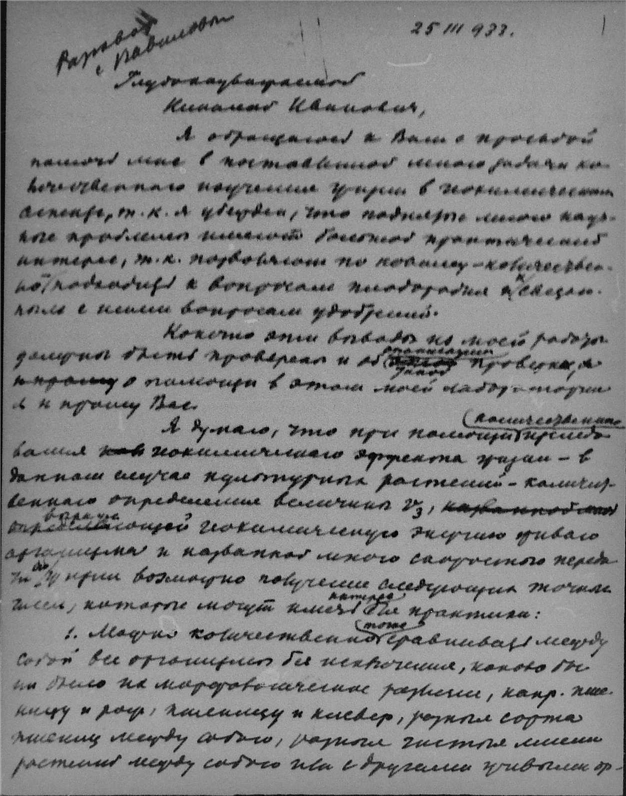 25 III 933.
Разговор
с Вавиловым
Глубокоуважаемый
Николай Иванович,
Я обращаюсь к Вам с просьбой
помочь мне в поставленной мною задачи ко-
личественного изучения жизни в геохимическом
аспекте, т. к. я убежден, что поднятые мною науч-
ные проблемы имеют большой практический
интерес, т. к. позволяют по новому – количествен-
но подходить к вопросам плодородия и связан-
ным с ними вопросам удобрений.
Конечно эти выводы из моей работы
должны быть проверены и об организации такой проверки, я
и прошу о помощи в этом моей лаборатории
я и прошу Вас.
Я думаю, что при помощи количественно исследо-
вания геохимического эффекта жизни – в
данном случае культурных растений – количест-
венного определения величины V₃,
выражающей геохимическую энергию живого
организма и названной мною скоростью переда-
чи жизни возможно получение следующих
которые могут иметь интерес для практики:
1. Можно количественно точно сравнивать между
собой все организмы без исключения, каково бы
ни было их морфологическое различие, напр. пше-
ницу и рожь, пшеницу и клевер, разные сорта
пшениц между собою, разные чистые линии
растений между собою или с другими живыми ор-